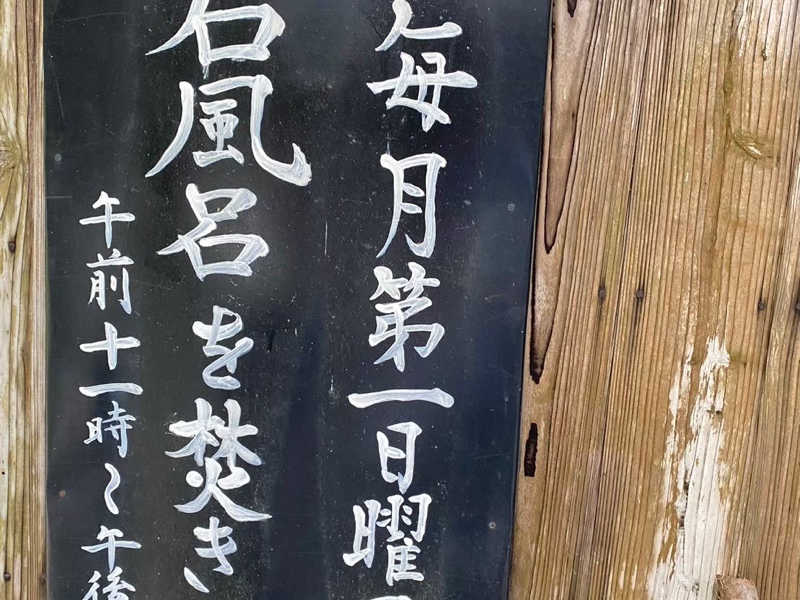 毎月第一日曜
石風呂を焚き
午前十一時〜午後